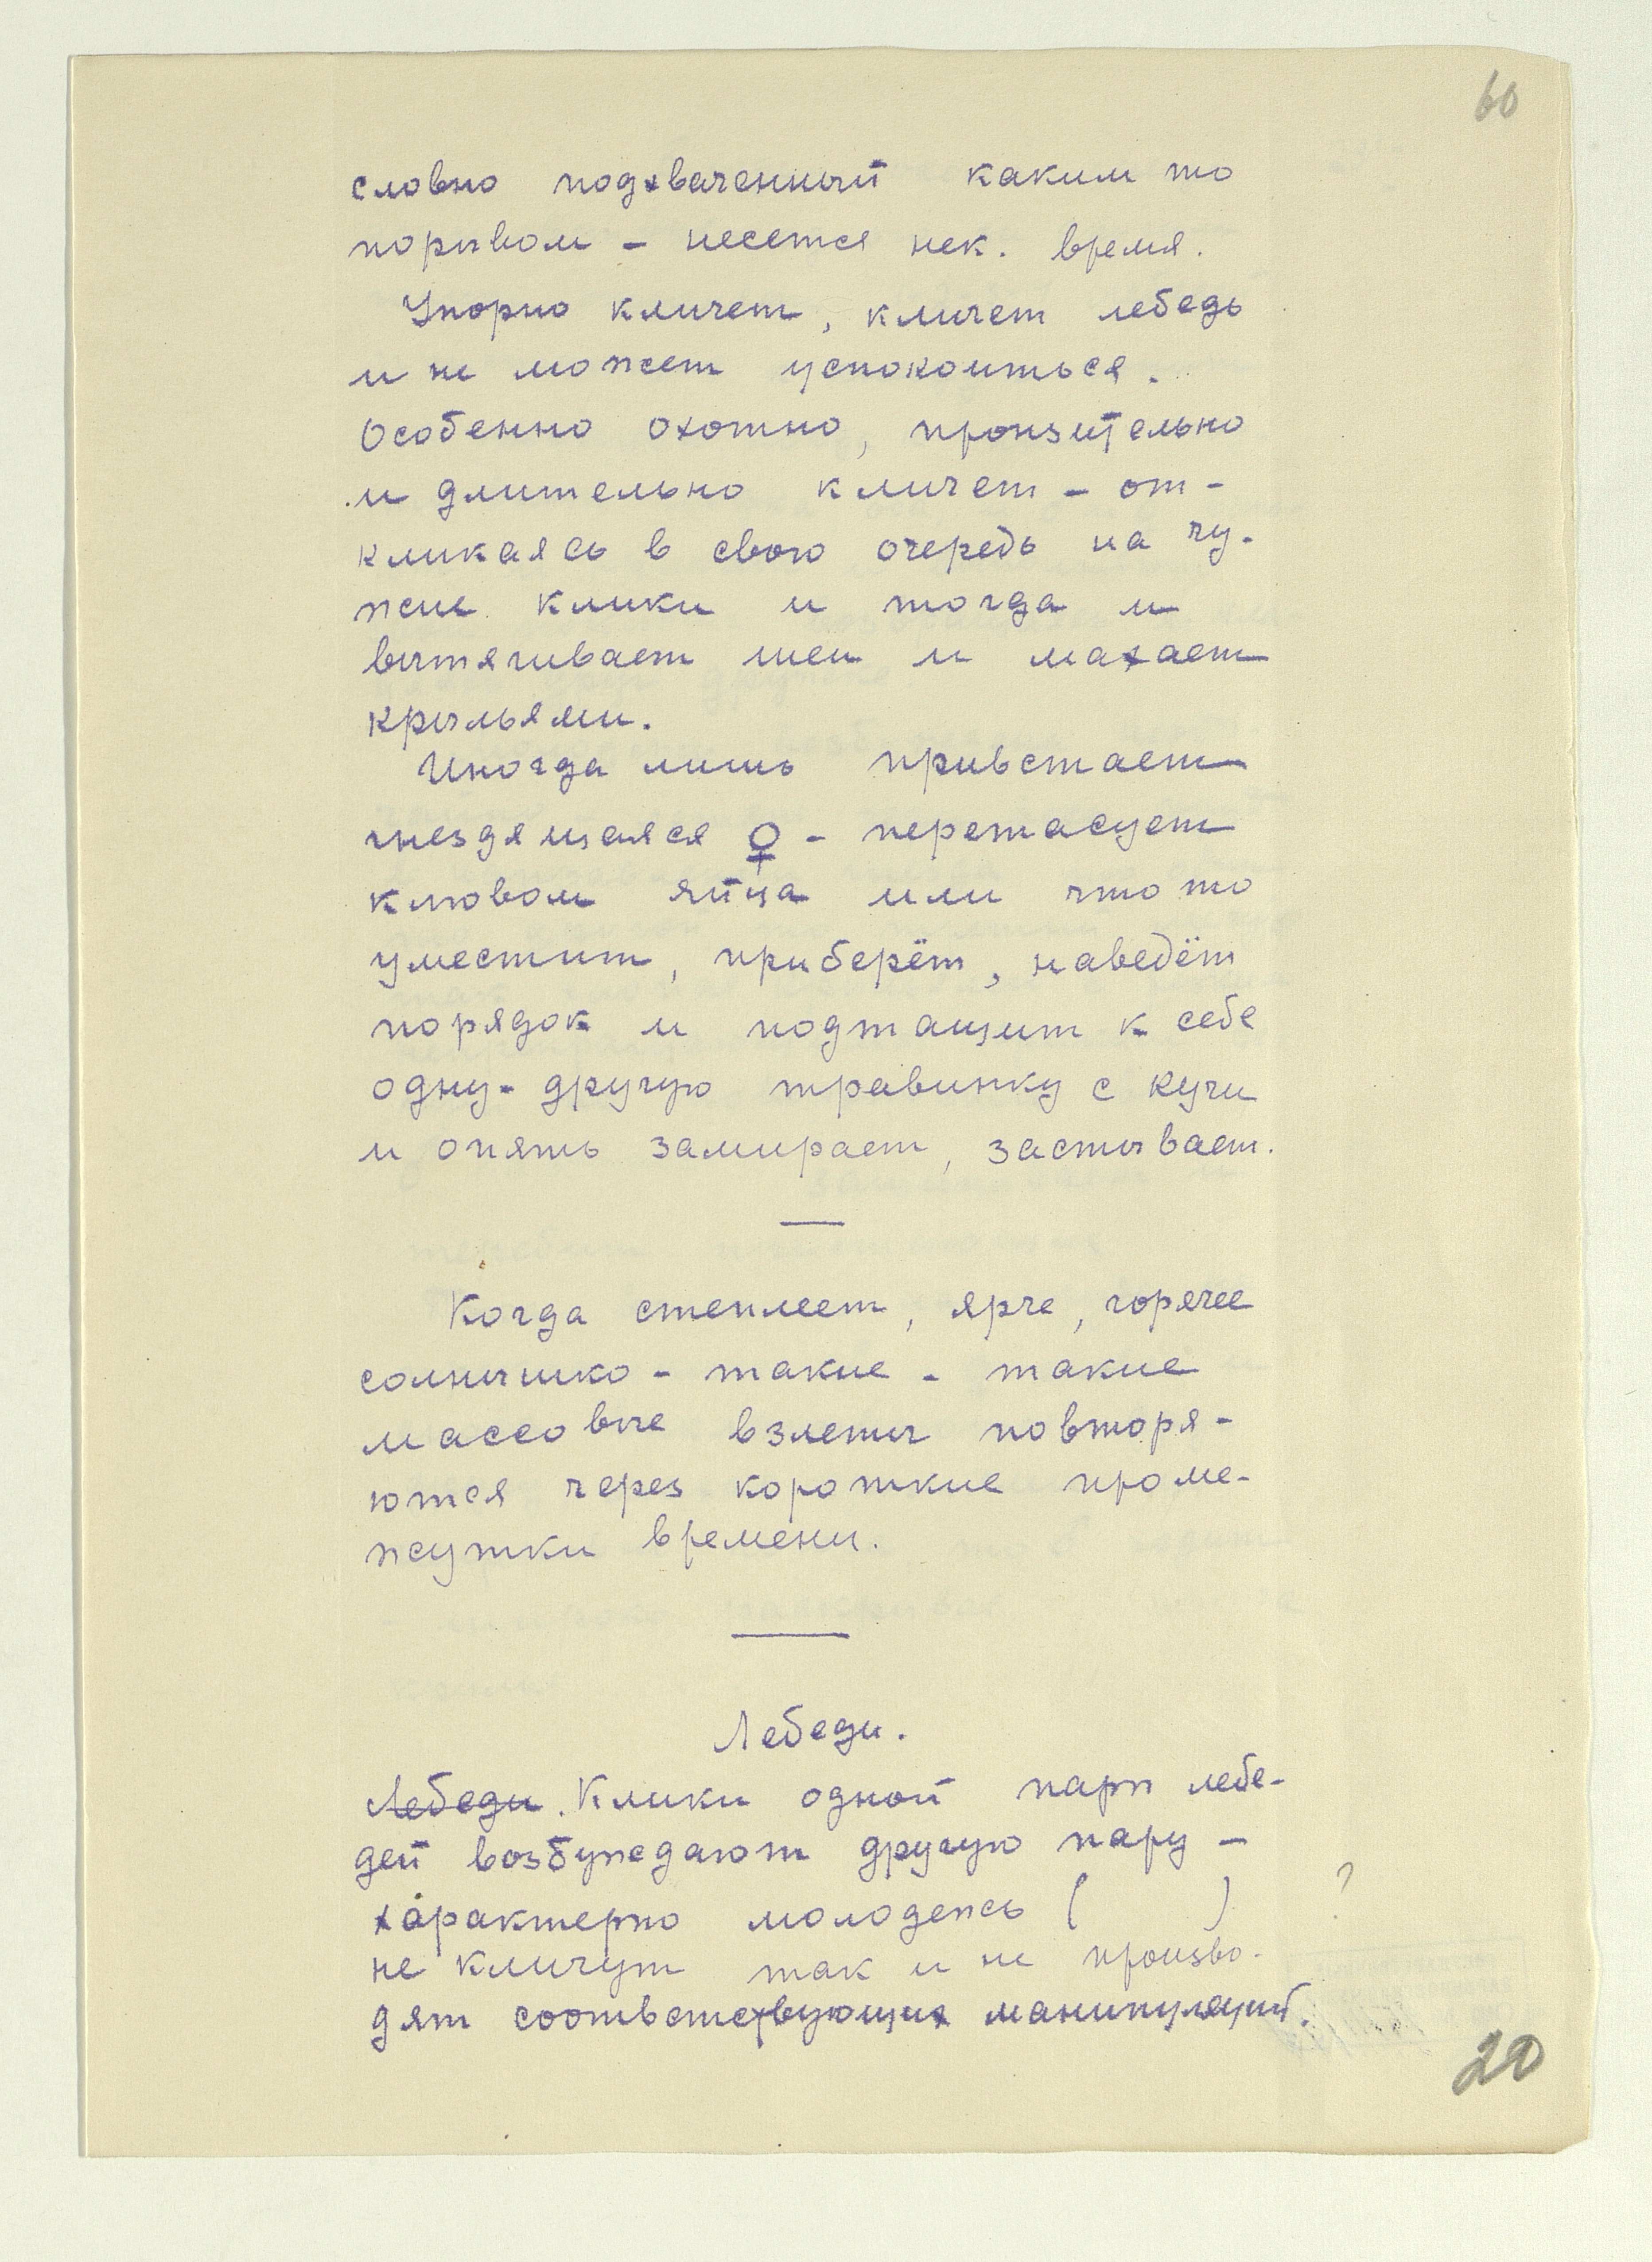 60
словно подхваченный каким то
порывом – несется нек. время.
Упорно кличет, кличет лебедь
и не может успокоиться.
Особенно охотно, пронзительно
и длительно кличет – от-
кликаясь в свою очередь на чу-
жие клики и тогда и
вытягивает шеи и махает
крыльями.
Иногда лишь привстает
гнездящаяся ♀ – перетасует
клювом яйца или что то
уместит, приберёт, наведёт
порядок и подтащит к себе
одну-другую травинку с кучи
и опять замирает, застывает.
Когда степлеет, ярче, горячее
солнышко – такие - такие
массовые взлеты повторя-
ются через короткие проме-
жутки времени.
Лебеди.
Лебеди. Клики одной пары лебе-
дей возбуждают другую пару –
характерно молодежь ( ) ?
не кличут так и не произво-
дят соответствующих манипуляций.
20